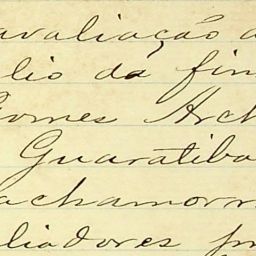 avaliação a
lio da fin
Gomes Arch
Guaratiba
achamorr
liadores pr